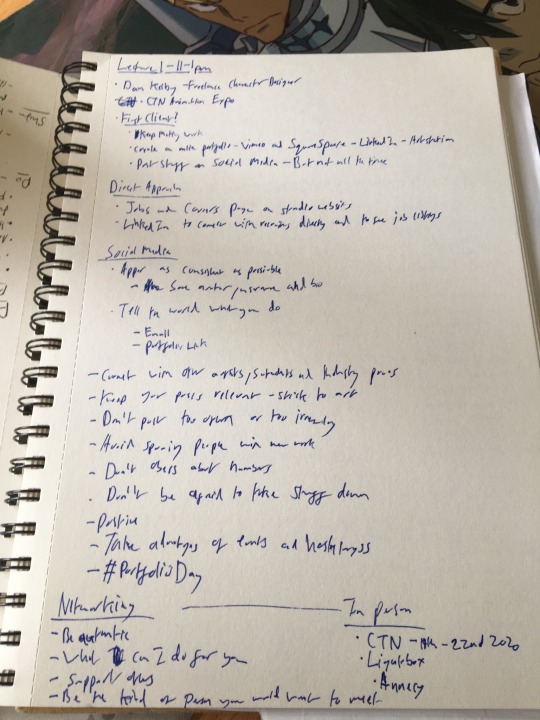 Lecture 1 - 11-1pm
· Dan Kelby - Freelance Character Designer
· CTN Animation Expo
· First Client?
· Keep making work
· Create a online portfolio - Vimeo and SquareSpace - LinkedIn - Artstation
· Post stuff on Social Media - But not all the time
Direct Approach
· Jobs and Careers page on studio websites
· LinkedIn to connect with recruiters directly and to see job listings
Social Media
· Appear as consistent as possible
- Same avatar, username and bio
· Tell the world what you do
- Email
- portfolio link
- Connect with other artists, students and Industry pros
- Keep your posts relevant - stick to art
- Don't post too often or too irregularly
- Avoid spamming people with new work
- Don't obsess about numbers
· Don't be afraid to take stuff down
- Positive
- Take advantage of events and hashtags
- #PortfolioDay
Networking
- Be authentic
- What can I do for you
- Support others
- Be the kind of person you would want to meet
In person
· CTN - 19th - 22nd 2020
· Lightbox
· Annecy